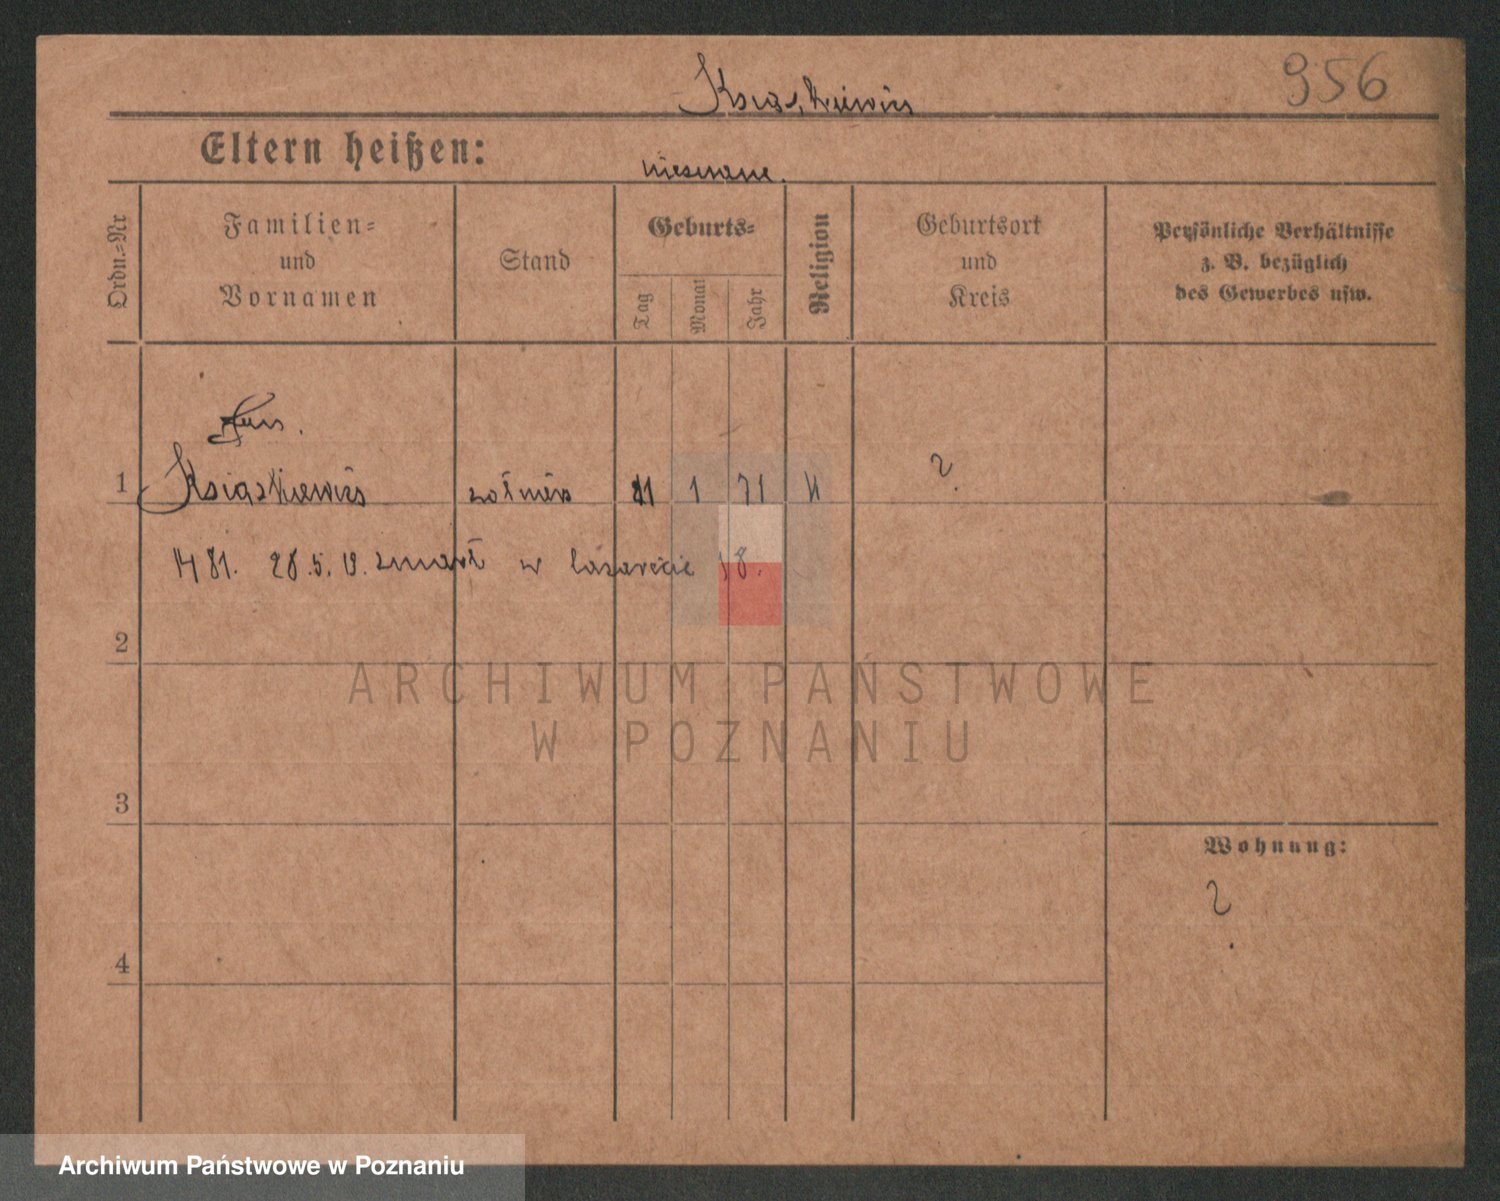 956
Książkiewicz
Eltern heißen: nieznane.
Ordn.-Nr
Familien-
und
Vornamen
Stand
Geburts-
Tag
Monat
Jahr
Religion
Geburtsort
und
Kreis
Persönliche Verhältnisse
z. B. bezüglich
des Gewerbes usw.
1 Książkiewicz żołnierz 1 71 K ?
1481. 28.5.19. zmarł w lazarecie 18.
2
ARCHIWUM PAŃSTWOWE
W POZNANIU
3
Wohnung:
?
4
Archiwum Państwowe w Poznaniu